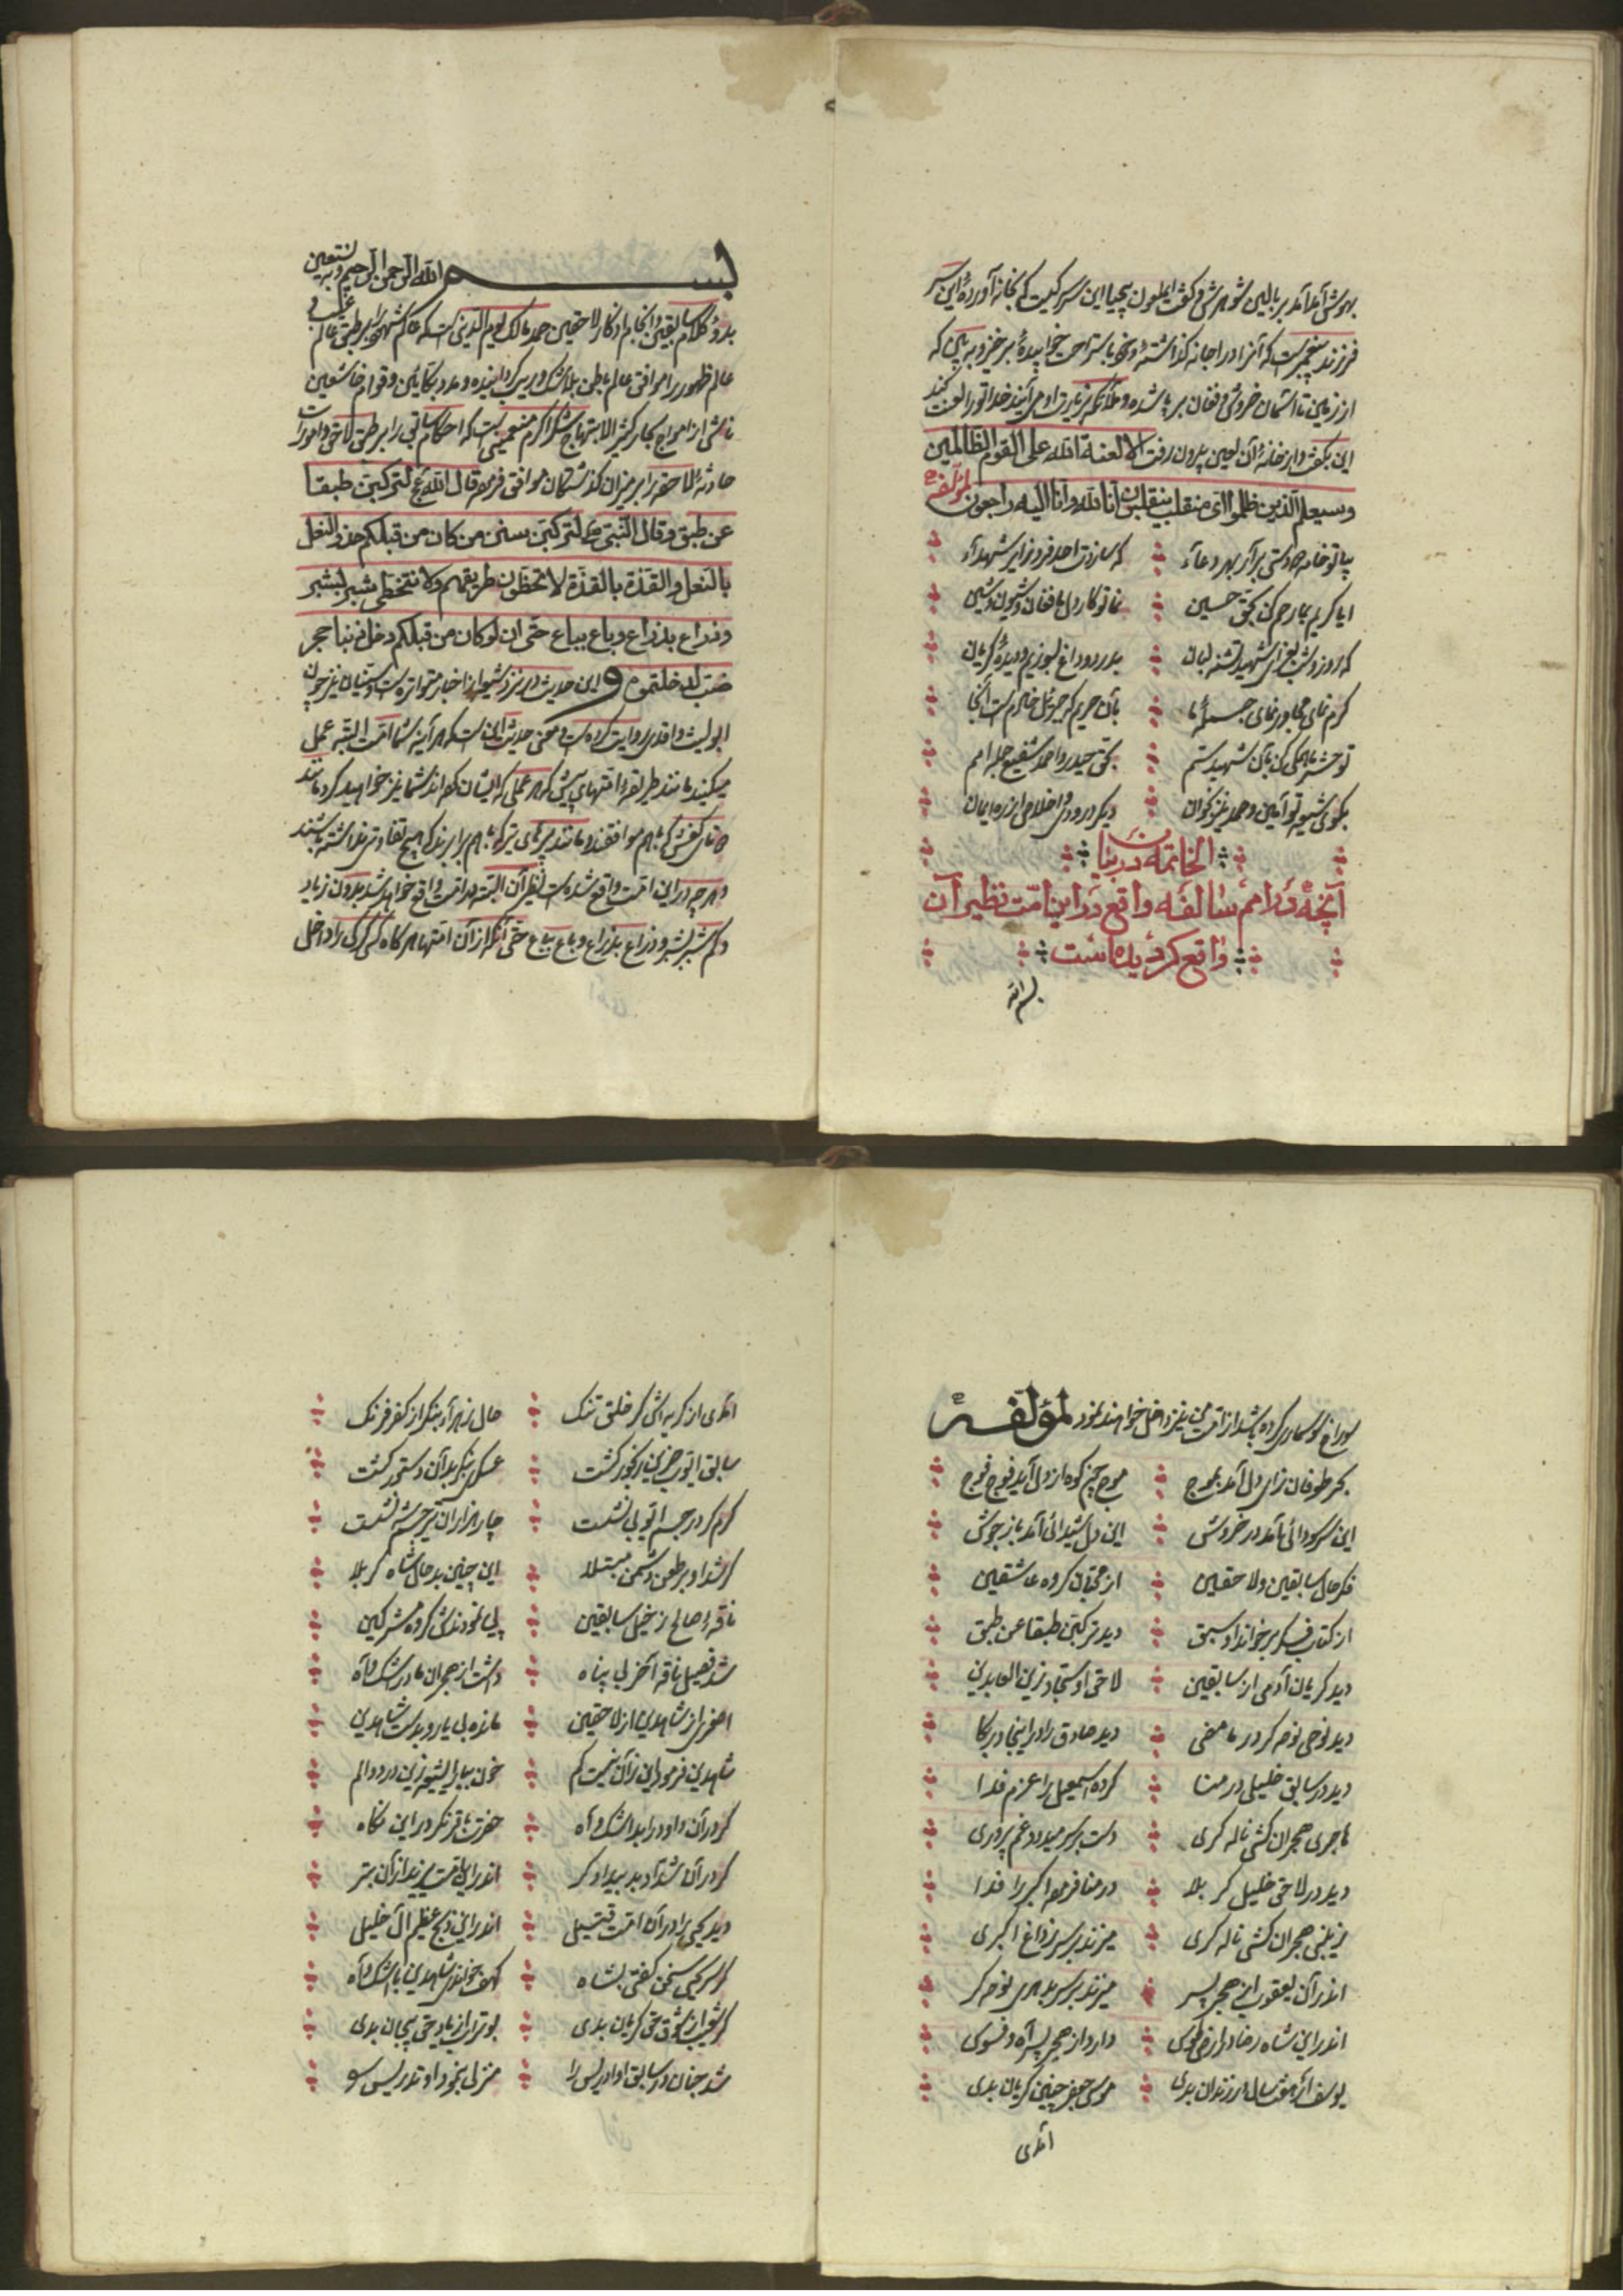 بهوش آمد آمد بر بالین شوهرش و گفت ای ملعون بیحیا این سر کیست که بخانه آورده این سر
فرزند پیغمبر است که آنرا در اجانه گذاشته و خود باستراحت خوابیدهٔ برخیز و به بین که
از زمین تا آسمان خروش و فغان بر پا شده و ملائکه بزیارت او می آیند خدا تو را لعنت کند
این بگفت و از خانهٔ آن لعین بیرون رفت الا لعنة الله علی القوم الظالمین
وسیعلم الذین ظلموا ای منقلب ینقلبون انا لله وانا الیه راجعون لمؤلفه
بیا تو خامه دستی برآر بهر دعاء
که سازدت احد فرد زایر شهداء
ایا کریم بما رحم کن بحق حسین
نما تو کار دل ما فغان و شیون و شین
که روز و شب بعزای شهید تشنه لبان
بدرد و داغ بسوزیم و دیدهٔ گریان
کرم نمای مجاور نمای جسم ما
بآن حریم که جبرئیل خادم است آنجا
تو حشر ما همگی کن بآن شهید ستم
بحق حیدر و احمد شفیع جمله امم
بگوی شیعه تو آمین و حمد نیز بخوان
دیگر درودی و اخلاص از ره ایمان
الخاتمه در بیان
آنچه در امم سالفه واقع و در این امت نظیر آن
واقع گردیده است
بسم الله
بسم الله الرحمن الرحیم وبه نستعین
بدو کلام سابقین و انجام اذکار لاحقین حمد مالک یوم الدینی است که عالم شهود را بر طبق عالم غیب و
عالم ظهور را موافق عالم باطن بلا شک و ریب گردانیده و مدد بکائین و قوام خاشعین
ناشی از امواج بحار کثیر الابتهاج شکر اکرم منعمی است که احکام سابق را بر طبق لاحق و امورات
حادثهٔ لاحقه را بر میزان گذشتگان موافق فرموده قال الله عج لترکبن طبقا
عن طبق و قال النبی ص لترکبن سنن من کان من قبلکم حذو النعل
بالنعل والقذة بالقذة لا تخطؤن طریقهم ولا تتخطی شبر بشبر
وذراع بذراع وباع بباع حتی ان لو کان من قبلکم دخل فیها حجر
ضب لدخلتموه و این حدیث در نزد شیعه از اخبار متواتره است و سنیان نیز چون
ابولیث واقدی روایت کرده است و معنی حدیث این است که هر آینه شما امت البته عمل
میکنید مانند طریقهٔ امتهای پیش که هر عملی که ایشان کرده اند شما نیز خواهید کرد مانند
دو تای کفش که با هم موافقند و مانند پرهای تیر که با هم برابرند که هیچ تفاوتی نداشته باشند
و هر چه در این امت واقع شده است نظیر آن البته در امت واقع خواهد شد بدون زیاد
و کم شبر بشبر و ذراع بذراع و باع بباع حتی آنکه از آن امتها هر گاه که گرگی را داخل
سوراخ سوسماری کرده باشد از امت من نیز داخل خواهند نمود لمؤلفه
بحر طوفان زای دل آمد بموج
موج چه کوه از دل آید فوج فوج
این سر سودائی ما در خروش
این دل شیدائی آمد باز جوش
فکر حال سابقین ولاحقین
از محبان گروه عاشقین
از کتاب فکر بر خواند او سبق
دید ترکبن طبقا عن طبق
دید گریان آدمی از سابقین
لاحق او سجاد زین العابدین
دید نوحی نوحه گر در ما مضی
دید صادق را در اینجا در بکا
دید در سابق خلیلی در منا
کرده اسمعیل را عزم فدا
هاجری هجران کشی ناله گری
دست بر سر میزد و غم پروری
دید در لاحق خلیل کربلا
در منا فرموده اکبر را فدا
زینبی هجران کشی ناله گری
میزند بر سر ز داغ اکبری
اندر آن یعقوبی از هجر پسر
میزند بر سر بد هری نوحه گر
اندر این شاه رضا در ارض طوس
دارد از هجر پسر آه و فسوس
یوسف ار هفت سال در زندان بدی
موسی جعفر چنین گریان بدی
آمدی
آمدی از گریه اش گر خلق تنگ
حال زهرا بنگر از کفر فرنگ
سابق ایوب حزین رنجور گشت
عسکری بنگر بد آن دستور گشت
کرم گر در جسم ایوبی نشست
چار هزاران تیر جسم شه نشست
گر شد او بر طعن دشمن مبتلا
این چنین بد حال شاه کربلا
ناقهٔ صالح ز خیل سابقین
پی نمودندش گروه مشرکین
شد فصیل ناقه آخر بی پناه
داشت از هجران مادر اشک و آه
اصغری از شاهدین از لاحقین
مانده بی یار و بدست شاهدین
شاهدین فرمود این زآن نیست کم
خون ببار ایشیعه زین درد و الم
گر در آن داود را بد اشک و آه
حضرت باقر نگر در این نگاه
گر در آن شداد بد بیدادگر
اندر این امت یزید از آن بتر
دید یحیی را در آن امت قتیلی
اندر این ذبح عظیم آل خلیلی
گر سر یحیی سخن گفتی بشاه
کهف خواندی شاهدین با اشک و آه
گر شعیب از شوق حق گریان بدی
بوتراب از یاد حق بیجان بدی
شد جنان در سابق او ادریس را
منزل بنمود او تدریس سو